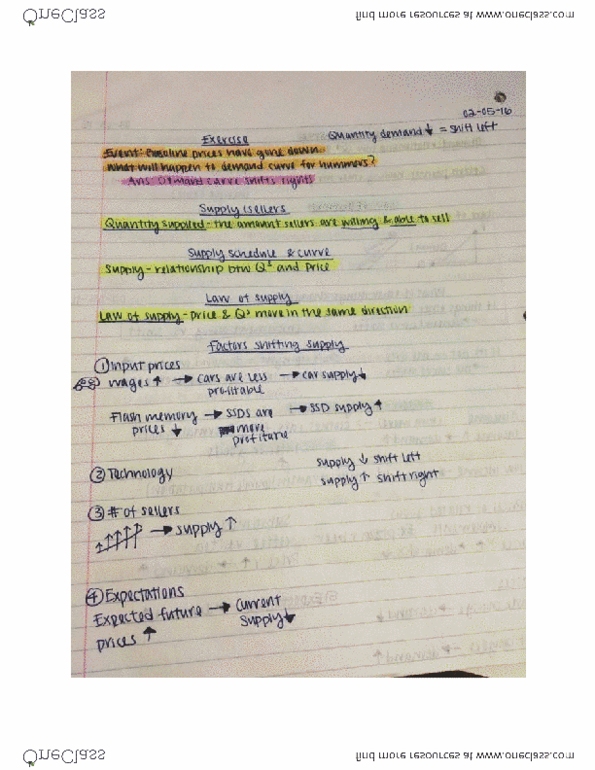 OneClass
find more resources at www.oneclass.com
02-05-16
Quantity demand ↓ = shift left
Exercise
Event: Gasoline prices have gone down.
What will happen to demand curve for hummers?
Ans: Demand curve shifts right
Supply (sellers
Quantity supplied - the amount sellers are willing & able to sell
Supply schedule & curve
Supply - relationship btw Qˢ and Price
Law of supply
Law of supply - Price & Qˢ move in the same direction
Factors shifting supply
① Input prices
wages ↑ → cars are less profitable → car supply ↓
Flash memory prices ↓ → SSDs are more profitable → SSD supply ↑
supply ↓ shift left
supply ↑ shift right
② Technology
③ # of sellers
→ supply ↑
④ Expectations
Expected future prices ↑ → Current supply ↓
OneClass
find more resources at www.oneclass.com